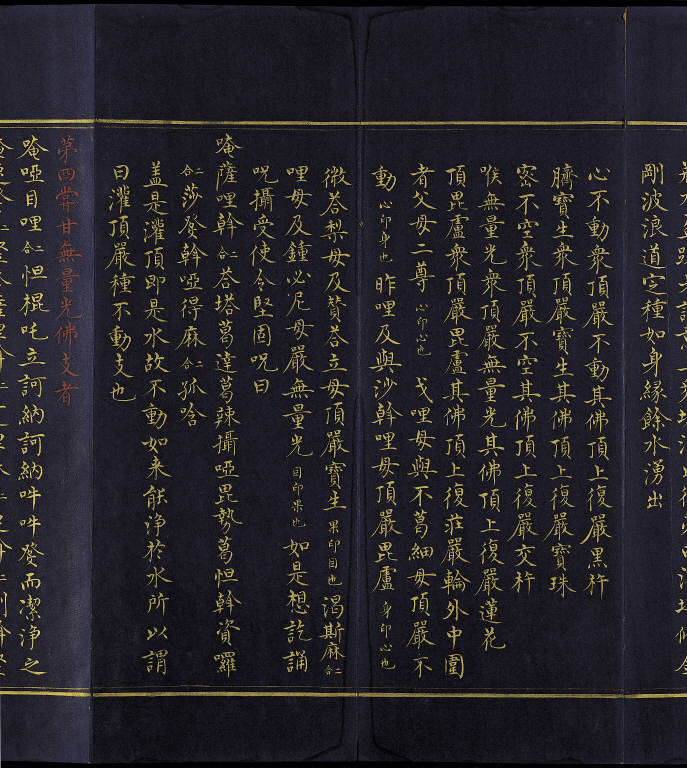 剛波浪道定種如身緣餘水湧出
心不動衆頂嚴不動其佛頂上復嚴黑杵
臍寶生衆頂嚴寶生其佛頂上復嚴寶珠
密不空衆頂嚴不空其佛頂上復嚴交杵
喉無量光衆頂嚴無量光其佛頂上復嚴蓮花
頂毘盧衆頂嚴毘盧其佛頂上復莊嚴輪外中圍
者父母二尊心印心也戈哩母與不葛細母頂嚴不
動心印身也昨哩及與沙斡哩母頂嚴毘盧身印心也
微荅梨母及賛荅立母頂嚴寶生果印目也渴斯麻二合
哩母及鐘必尼母嚴無量光目印果也如是想訖誦
呪攝受使令堅固呪曰
唵薩哩斡二合荅塔葛達葛辣攝啞毘勢葛怛斡資囉
二合莎發斡啞得麻二合孤唅
盖是灌頂即是水故不動如来能浄於水所以謂
曰灌頂嚴種不動支也
第四甞甘無量光佛支者
唵啞目哩二合怛棍吒立訶納訶納吽吽發而潔浄之